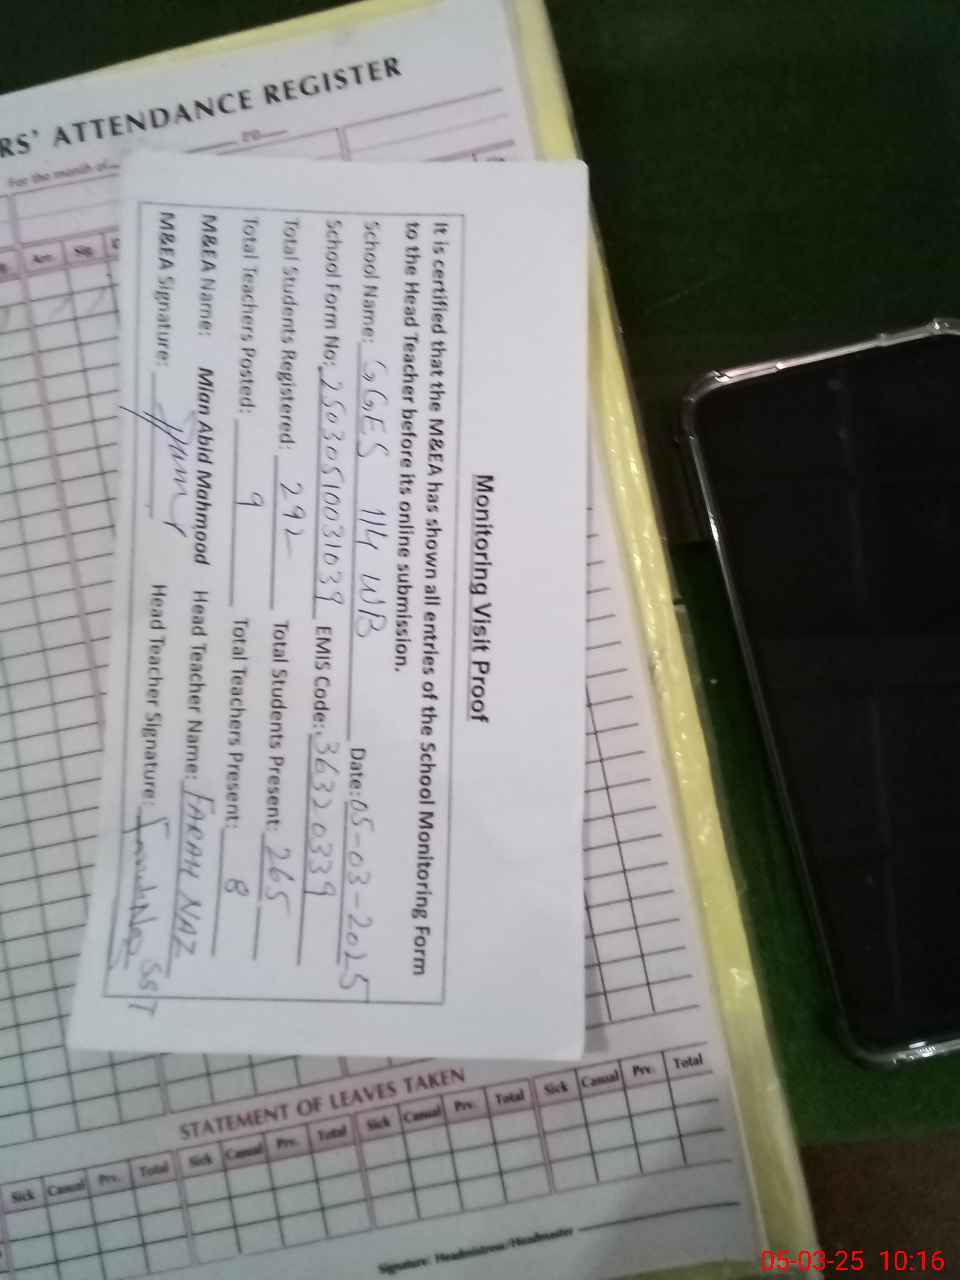 RS' ATTENDANCE REGISTER
For the month of 20
Arr. Sig.
Monitoring Visit Proof
It is certified that the M&EA has shown all entries of the School Monitoring Form
to the Head Teacher before its online submission.
School Name: GGES 114 WB Date: 05-03-2025
School Form No: 25030510031039 EMIS Code: 36320339
Total Students Registered: 292 Total Students Present: 265
Total Teachers Posted: 9 Total Teachers Present: 8
M&EA Name: Mian Abid Mahmood Head Teacher Name: FARAH NAZ
M&EA Signature: Head Teacher Signature: SST
STATEMENT OF LEAVES TAKEN
Sick Casual Prv. Total Sick Casual Prv. Total Sick Casual Prv. Total Sick Casual Prv. Total
Signature: Headmistress/Headmaster
05-03-25 10:16